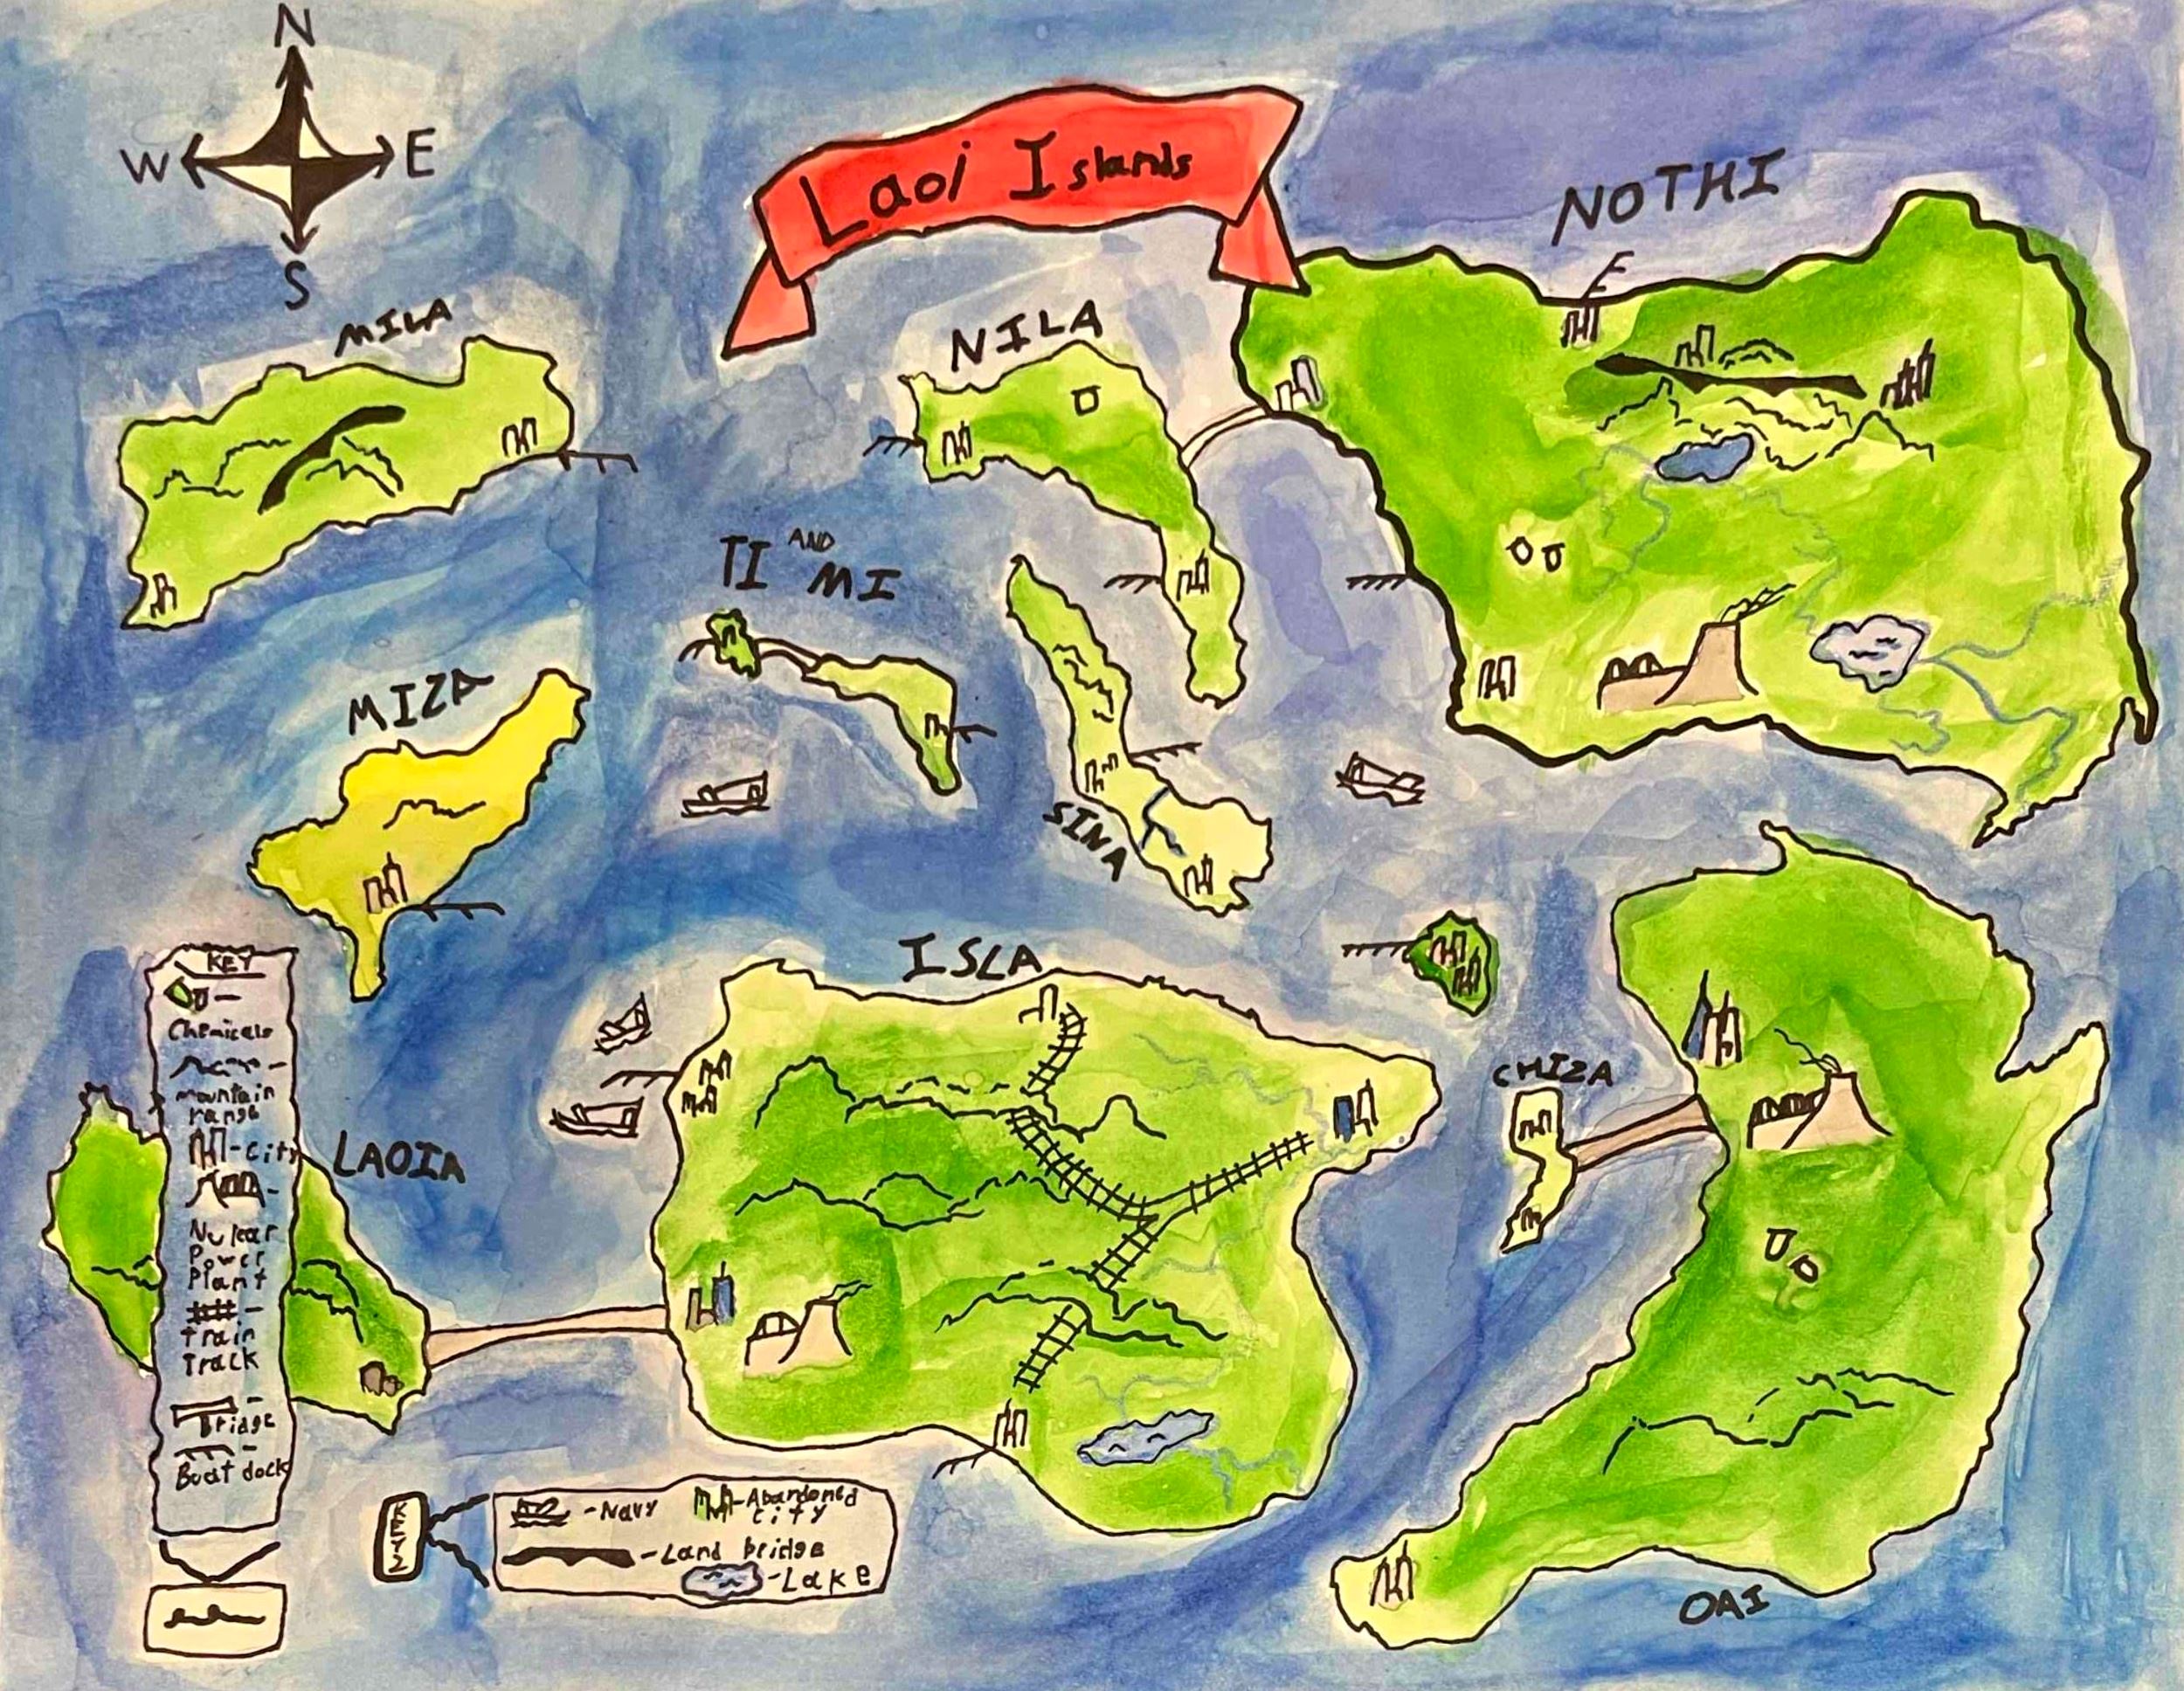 N
W E
S
Laoi Islands
NOTHI
MILA
NILA
TI AND MI
MIZA
SINA
ISLA
CHIZA
LAOIA
OAI
KEY
Chemicals
mountain
range
-City
Nulear
Power
Plant
train
track
bridge
Boat dock
KEY2
-Navy
-Abandoned
city
-Land bridge
-Lake